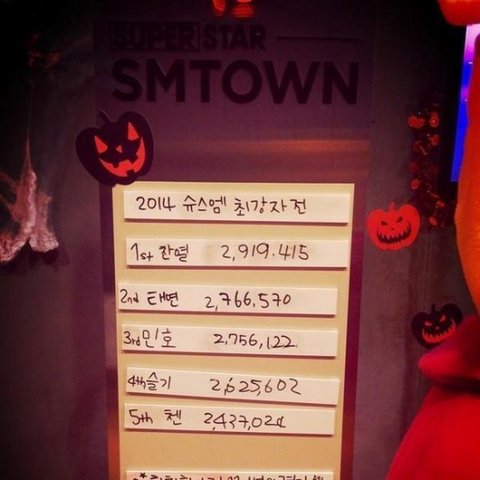 SUPER STAR
SMTOWN
2014 슈스엠 최강자전
1st 찬열 2,919.415
2nd 태연 2,766,570
3rd 민호 2,756,122
4th 슬기 2,625,602
5th 첸 2,437,020